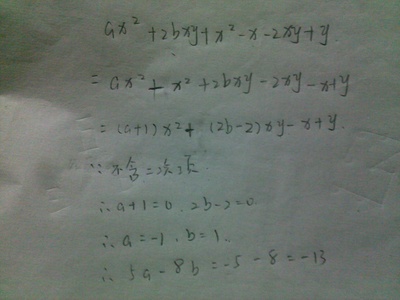 ax²+2bxy+x²-x-2xy+y.
=ax²+x²+2bxy-2xy-x+y
=(a+1)x²+(2b-2)xy-x+y.
∵不含二次项.
∴a+1=0.2b-2=0
∴a=-1.b=1.
∴5a-8b=-5-8=-13